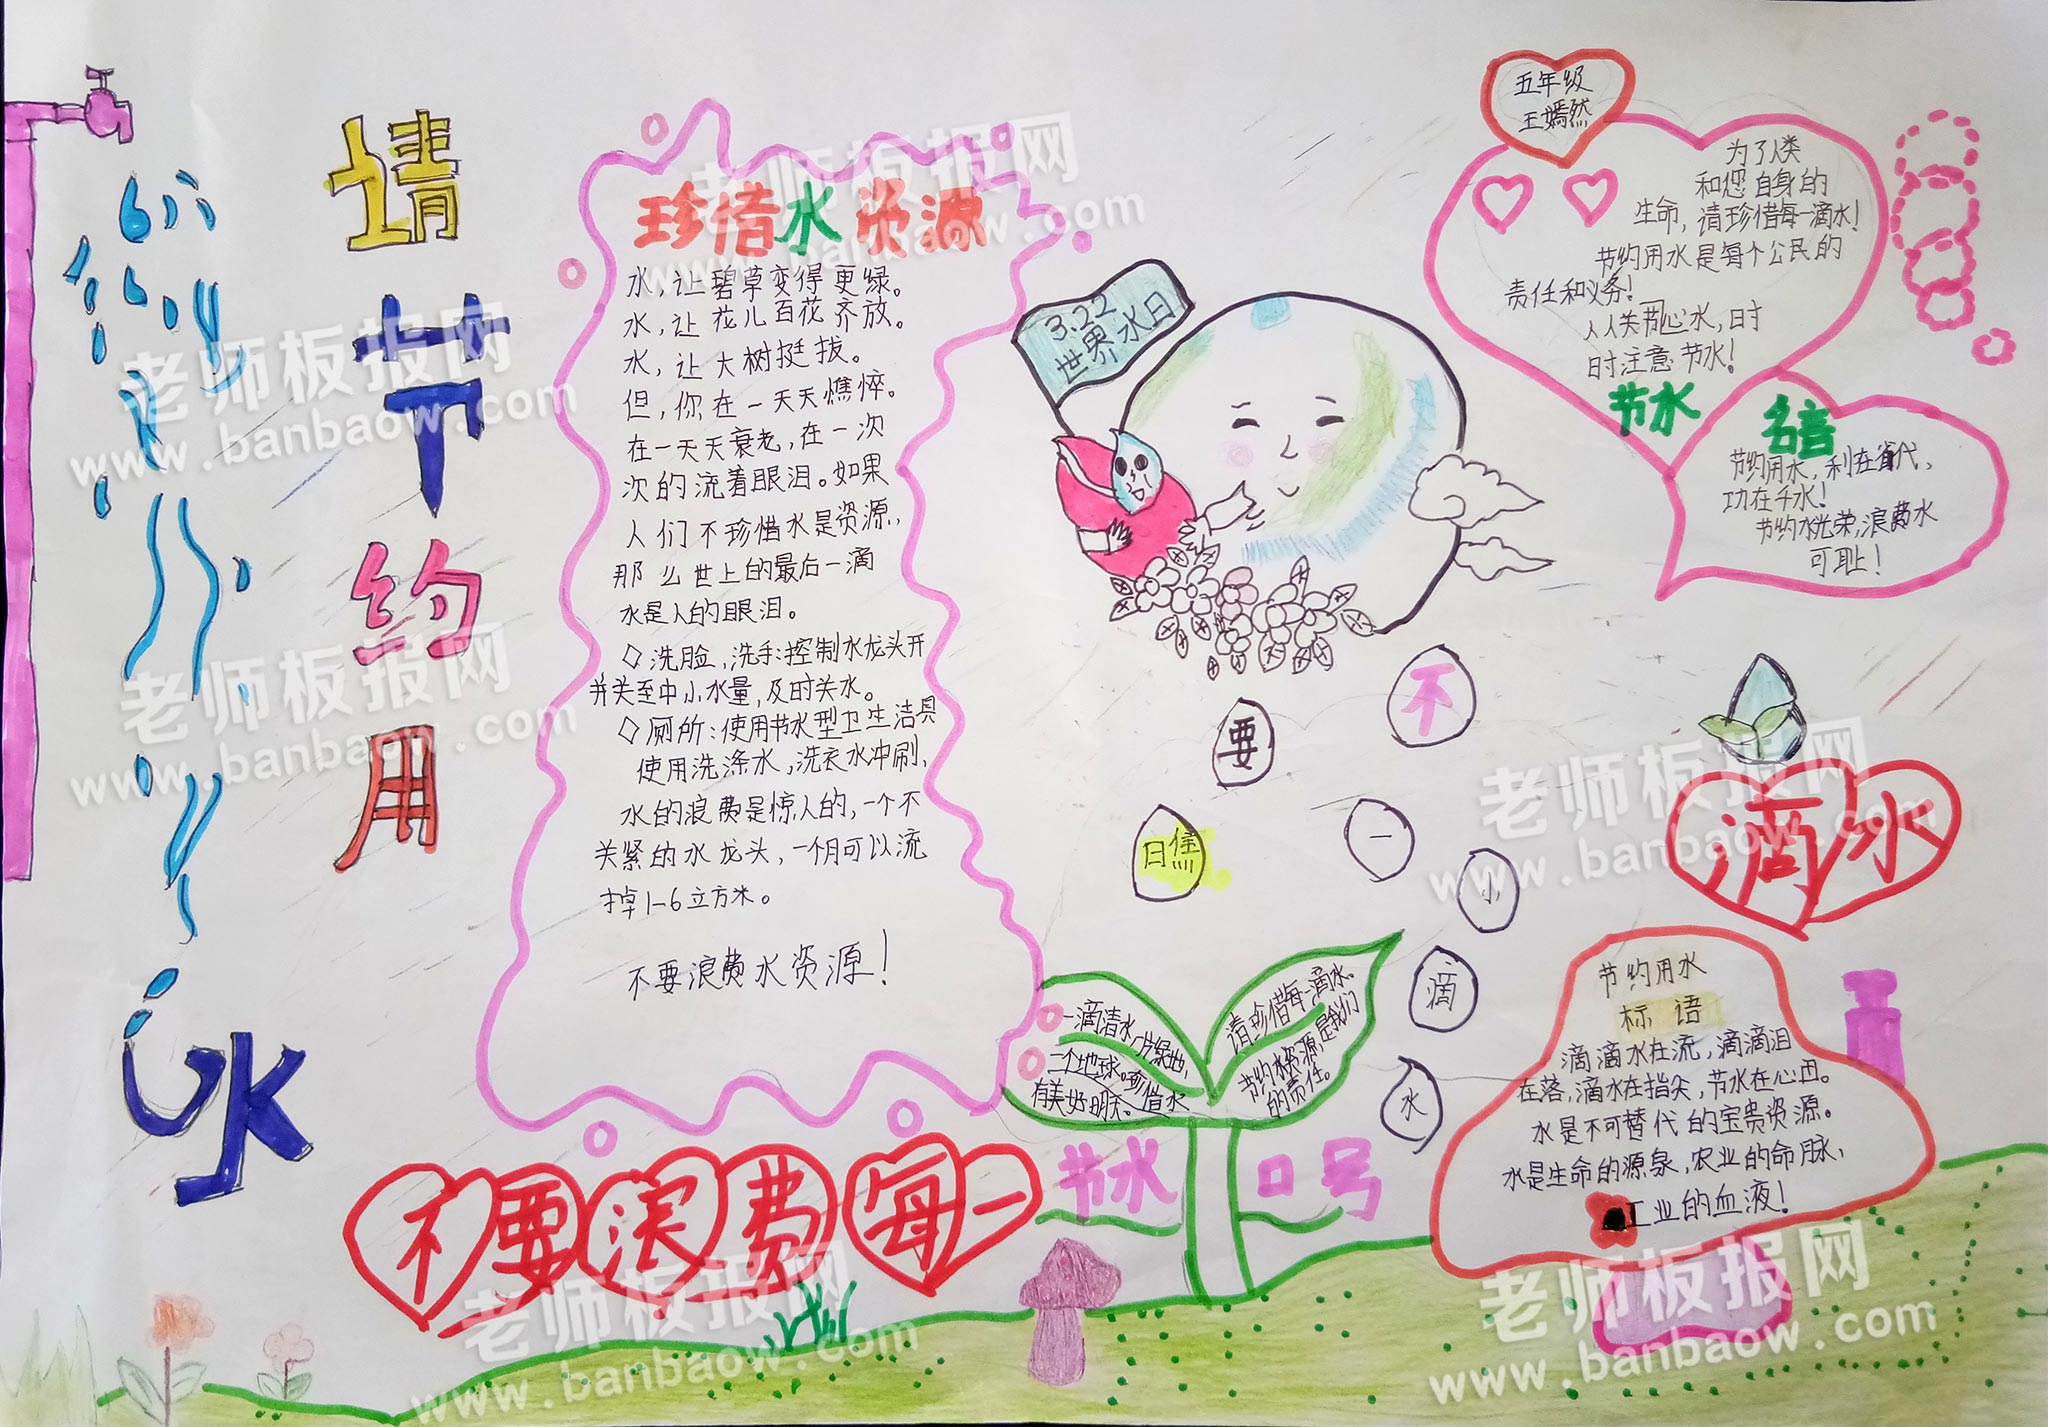 请节约用水
珍惜水资源
水,让碧草变得更绿。
水,让花儿百花齐放。
水,让大树挺拔。
但,你在一天天憔悴。
在一天天衰老,在一次
次的流着眼泪。如果
人们不珍惜水是资源,
那么世上的最后一滴
水是人的眼泪。
◇洗脸,洗手:控制水龙头开
并关至中小水量,及时关水。
◇厕所:使用节水型卫生洁具
使用洗涤水,洗衣水冲刷、
水的浪费是惊人的,一个不
关紧的水龙头,一个月可以流
掉1-6立方米。
不要浪费水资源!
3.22
世界水日
五年级
王嫣然
为了人类
和您自身的
生命,请珍惜每一滴水!
节约用水是每个公民的
责任和义务!
人人关节心水,日寸
时注意节水!
节水 名言
节约用水,利在省代、
功在千水!
节约水光荣,浪费水
可耻!
不要
一小滴水
不要浪费每一
滴水
一滴清水,片绿地,
一个地球。珍惜水
有美好明天。
请珍惜每一滴水。
节约水资源,是我们
的责任。
节水 口号
节约用水
标语
滴滴水在流,滴滴泪
在落,滴水在指尖,节水在心田。
水是不可替代的宝贵资源。
水是生命的源泉,农业的命脉、
工业的血液!
老师板报网
www.banbaow.com
老师板报网
www.banbaow.com
老师板报网
www.banbaow.com
老师板报网
www.banbaow.com
老师板报网
www.banbaow.com
老师板报网
www.banbaow.com